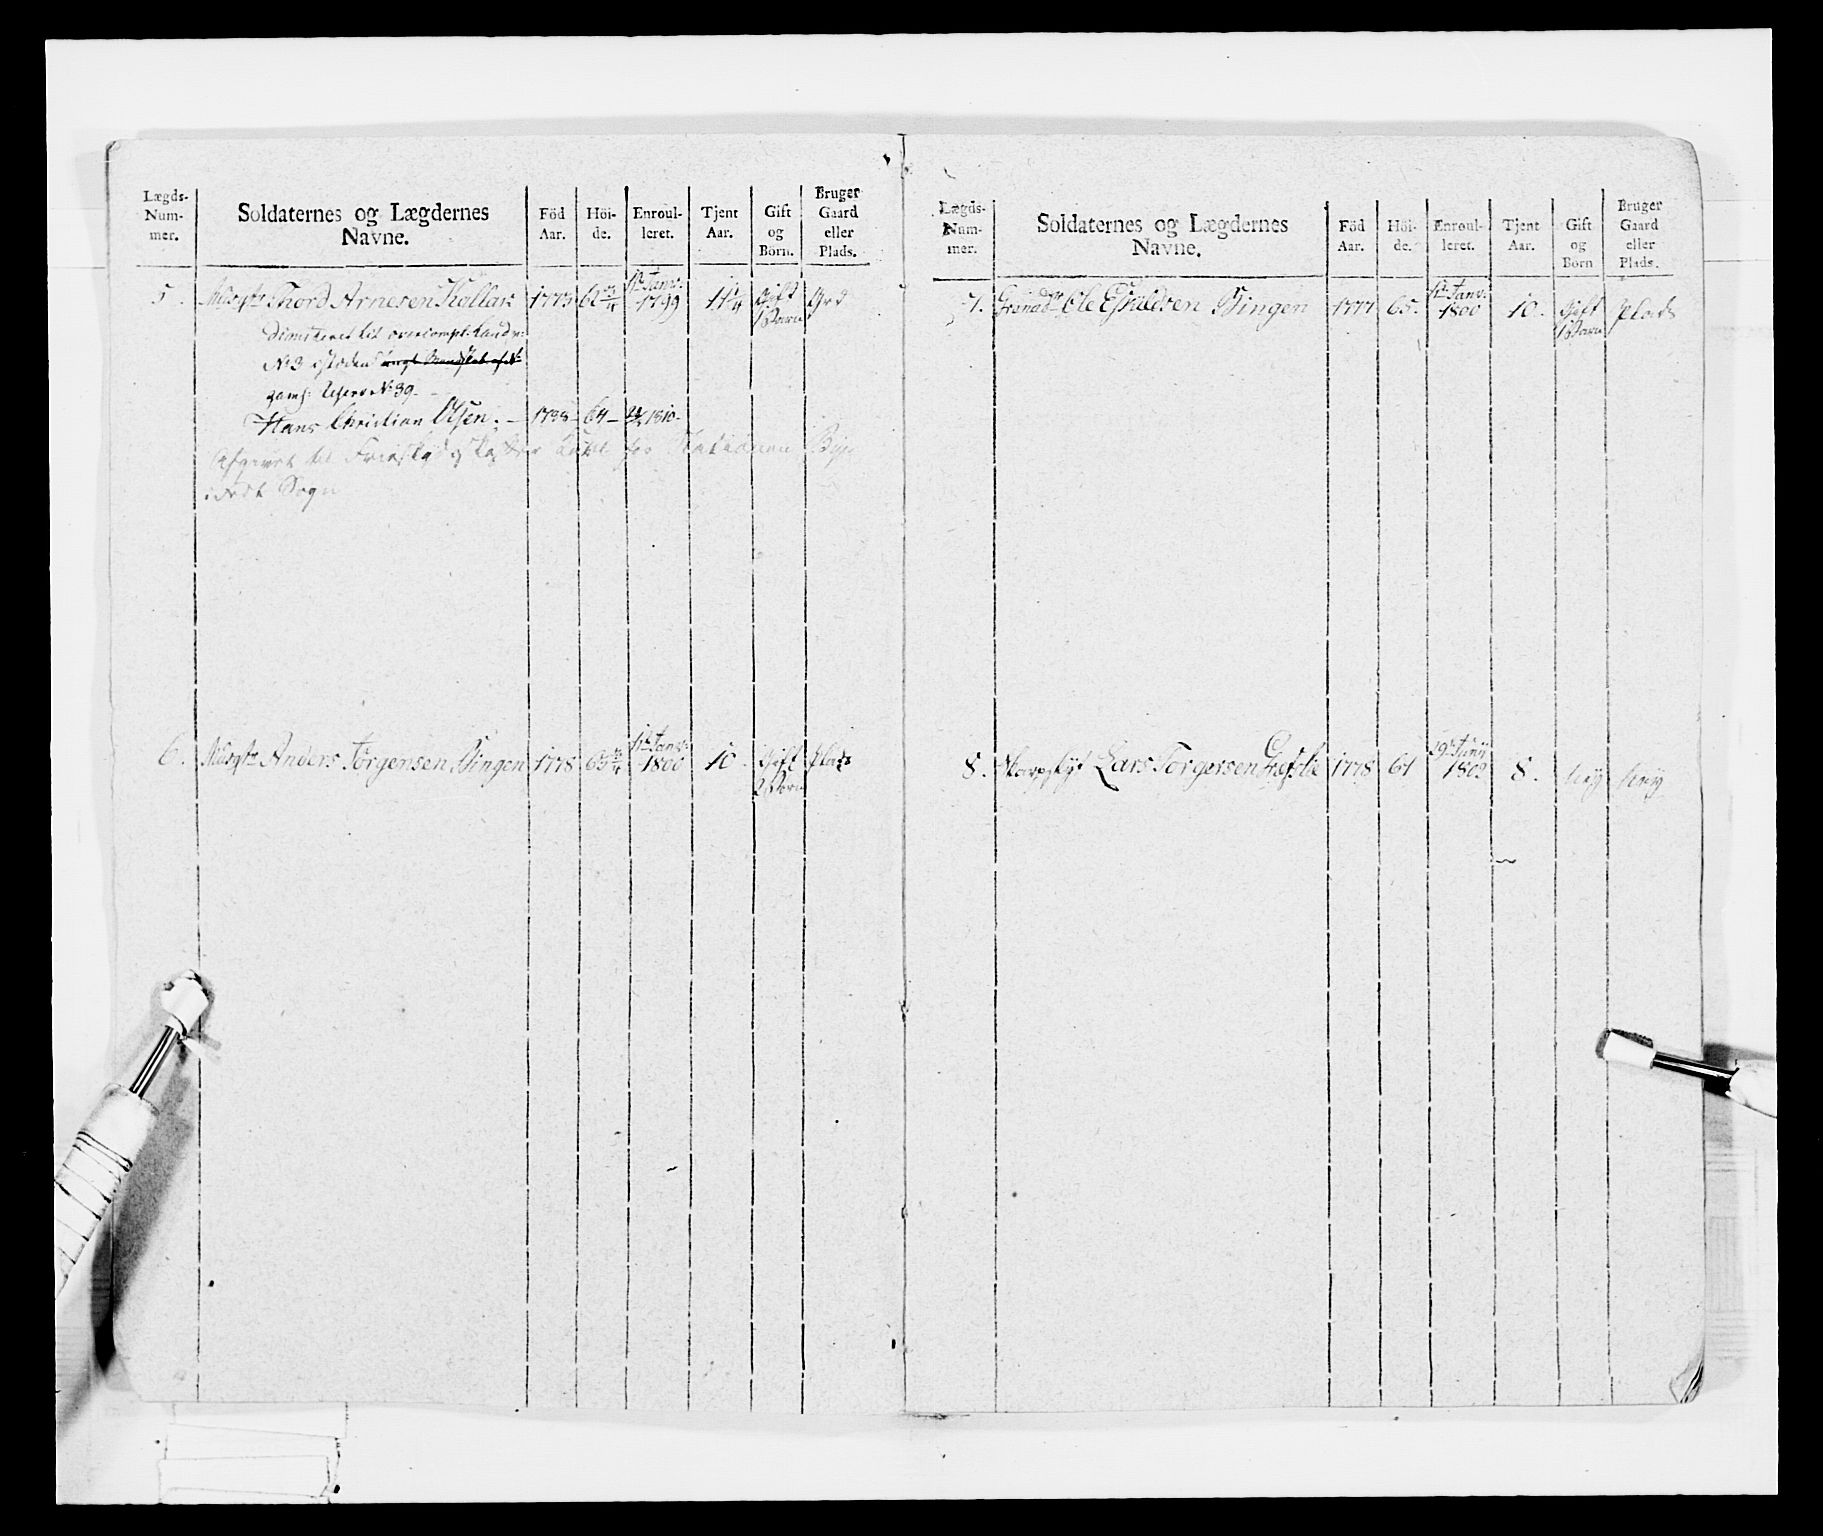 Lægds-Num-mer. Soldaternes og Lægdernes Navne. Föd Aar. Höi-de. Enroul-leret. Tjent Aar. Gift og Börn. Bruger Gaard eller Plads.
5. Musqtr Thord Arnesen Kollar 1773 62 3/4 1te Janv: 1799 11 1/4 Gift 1 Barn Grd
Dimiteret til overcompl: Landv:
No 3 istæden
No 39.
Hans Christian Olsen. – 1788 – 64 – 1810.
Afgivet til
i Sogn
6. Musqtr Anders Jörgensen Bingen 1778 63 3/4 1te Janv: 1800 10. Gift 2 Börn Plads
Lægds-Num-mer. Soldaternes og Lægdernes Navne. Föd Aar. Höi-de. Enroul-leret. Tjent Aar. Gift og Börn Bruger Gaard eller Plads.
7. Grenadr Ole Eskildsen Bingen 1777 65. 1te Janv: 1800 10. Gift 1 Barn Plads
8. Skarpsky: Lars Torgersen 1778 61 19de Juny 1802 8. Ney Ney